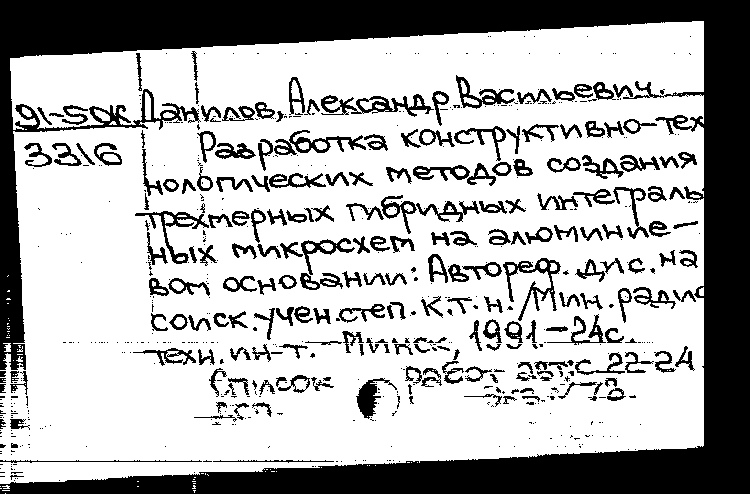 91-50K. Данилов, Александр Васильевич.
3316 Разработка конструктивно-тех
нологических методов создания
трехмерных гибридных интеграль
ных микросхем на алюминие-
вом основании: Автореф. дис. на
соиск. учен. степ. к.т.н. / Мин. радио
техн. ин-т. - Минск, 1991. - 24с.
Список работ авт: с 22-24.
ДСП. Экз. N 78.